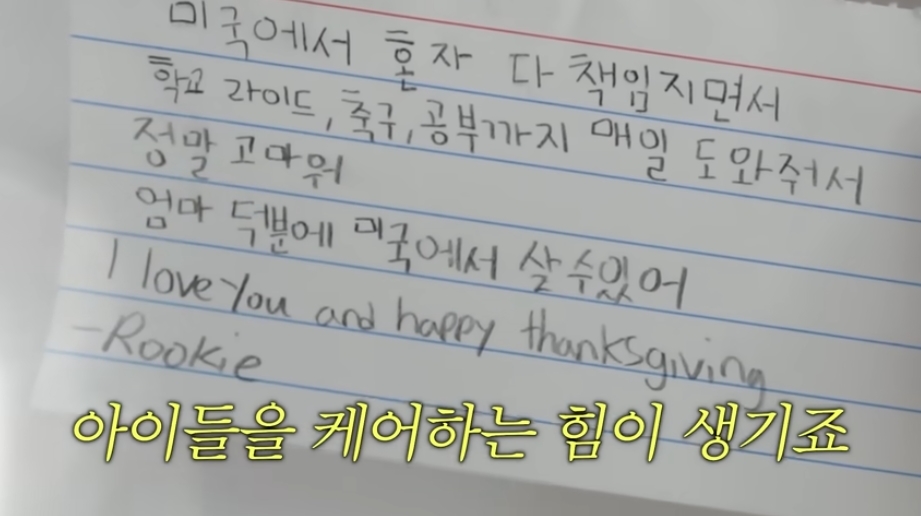 미국에서 혼자 다 책임지면서
학교 라이드, 축구, 공부까지 매일 도와주서
정말 고마워
엄마 덕분에 미국에서 살 수 있어
I love you and happy thanksgiving
-Rookie
아이들을 케어하는 힘이 생기죠